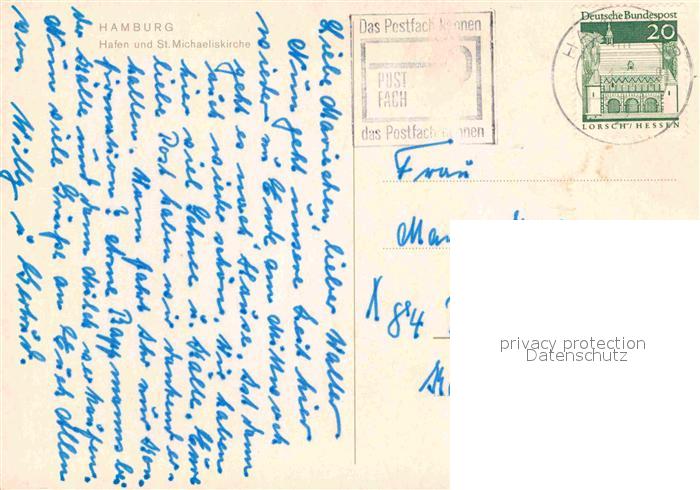 HAMBURG
Hafen und St. Michaeliskirche
Das Postfach kennen
POST
FACH
das Postfach nennen
Deutsche Bundespost
20
LORSCH/HESSEN
Liebe Mariechen, lieber Walter
Nun geht unsere Zeit hier
wieder zu Ende am Mittwoch
geht es nach Hause. Ist dann
auch wieder schön. Wir haben
hier viel Schnee u. Kälte. Eure
liebe Post haben wir dankend er-
halten. Wann fahrt Ihr zur Kon-
firmation? Ohne Bappmanns bei
der Kälte und dann Milch verkaufen.
Nun viele Grüße an Euch Allen
von Willy u Gertrud.
Frau
privacy protection
Datenschutz